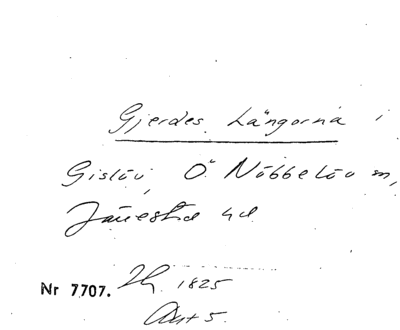 Gjerdes Längorna i
Gislöv, Ö Nöbbelöv m,
Järrestad hd
Nr 7707. 1825
Ant 5.